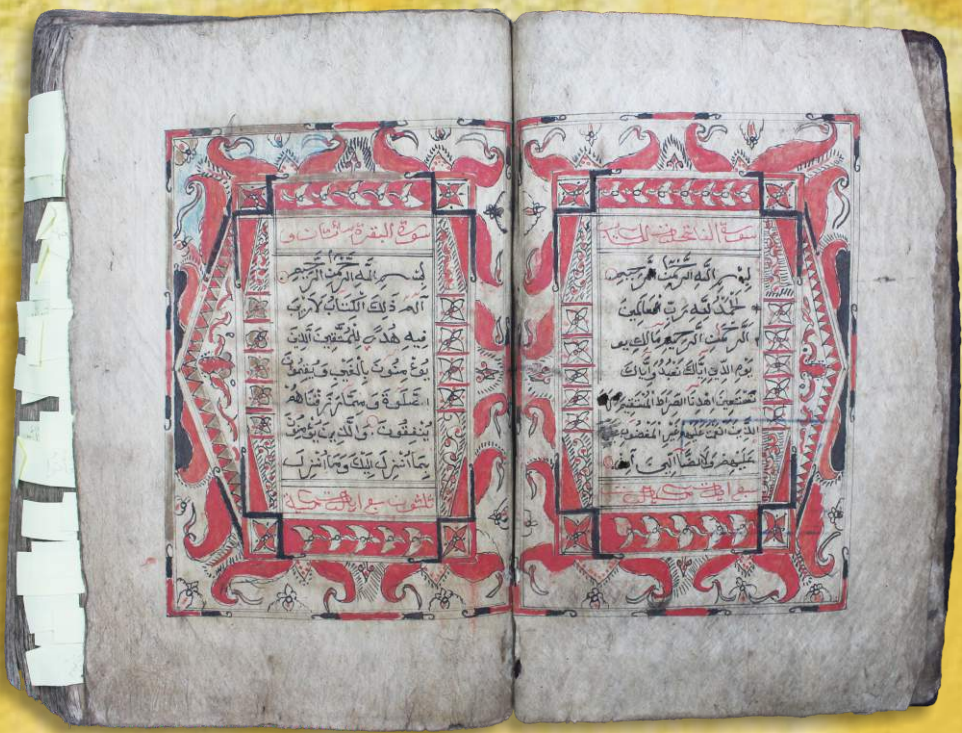 سورة الفاتحة
بِسْمِ اللّٰهِ الرَّحْمٰنِ الرَّحِيْمِ
اَلْحَمْدُ لِلّٰهِ رَبِّ الْعٰلَمِيْنَ
الرَّحْمٰنِ الرَّحِيْمِ مَالِكِ يو
يَوْمِ الدِّيْنِ اِيَّاكَ نَعْبُدُ وَاِيَّاكَ
نَسْتَعِيْنُ اِهْدِنَا الصِّرَاطَ الْمُسْتَقِيْمَ
الَّذِيْنَ اَنْعَمْتَ غَيْرِ الْمَغْضُوْبِ
عَلَيْهِمْ وَلَا الضَّالِّيْنَ
سبع ايات
سورة البقرة مائتان و
بِسْمِ اللّٰهِ الرَّحْمٰنِ الرَّحِيْمِ
الٓمٓ ذٰلِكَ الْكِتَابُ لَا رَيْبَ
فِيْهِ هُدًى لِلْمُتَّقِيْنَ الَّذِيْنَ
يُؤْمِنُوْنَ بِالْغَيْبِ وَيُقِيْمُوْنَ
الصَّلٰوةَ وَمِمَّا رَزَقْنَاهُمْ
يُنْفِقُوْنَ وَالَّذِيْنَ يُؤْمِنُوْنَ
بِمَا اُنْزِلَ اِلَيْكَ وَمَا اُنْزِلَ
ثلثون